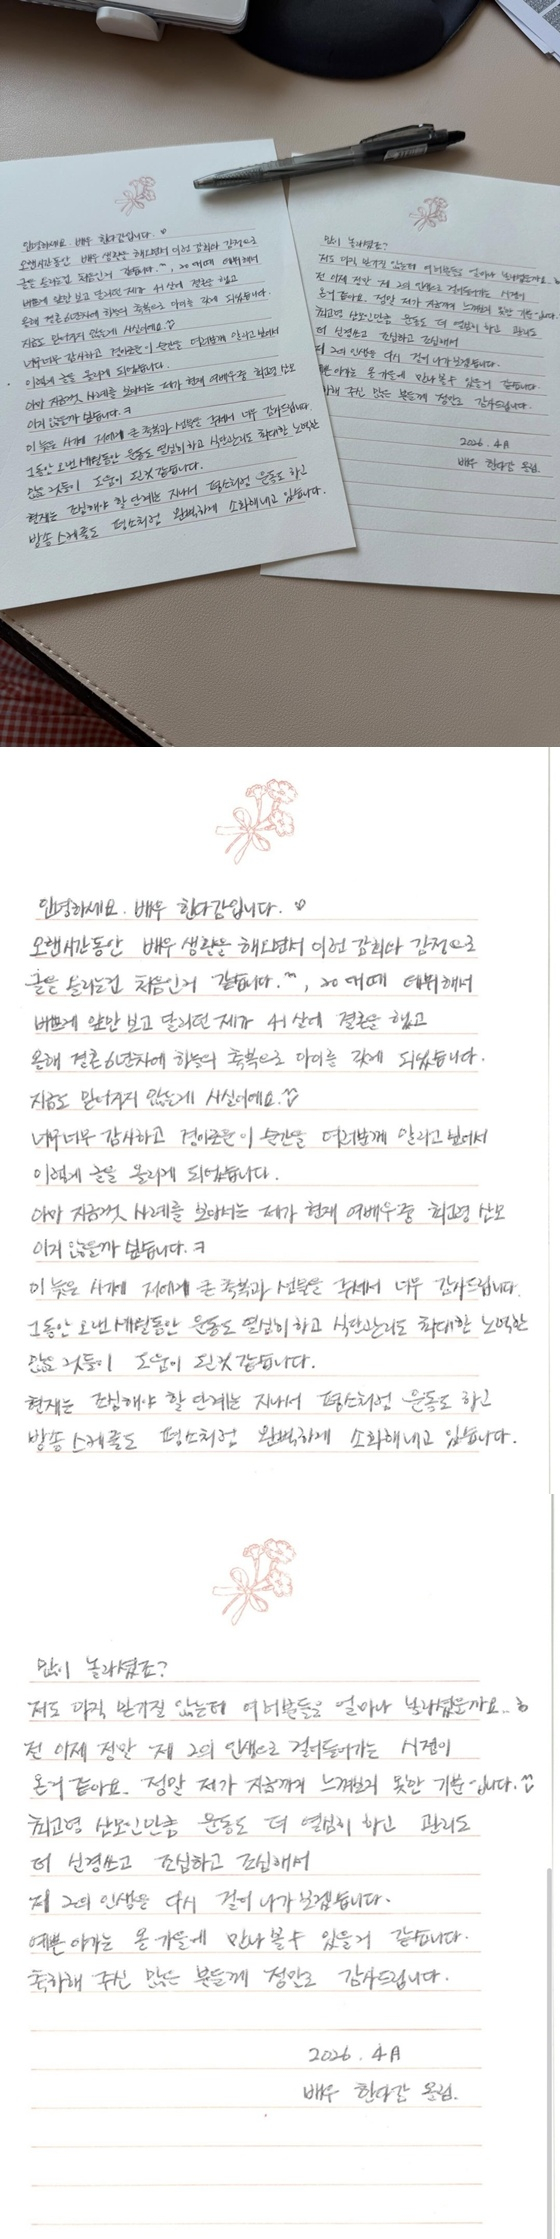 안녕하세요. 배우 한다감입니다. ♡
오랜시간동안 배우 생활을 해오면서 이런 감회와 감정으로
글을 올리는건 처음인거 같습니다. ^^, 20대때 데뷔해서
바쁘게 앞만 보고 달리던 제가 41살에 결혼을 했고
올해 결혼 6년차에 하늘의 축복으로 아이를 갖게 되었습니다.
지금도 믿어지지 않는게 사실이에요.
너무너무 감사하고 경이로운 이 순간을 여러분께 알리고 싶어서
이렇게 글을 올리게 되었습니다.
아마 지금껏 사례를 보아서는 제가 현재 여배우중 최고령 산모
이지 않을까 싶습니다. ㅋ
이 늦은 시기에 저에게 큰 축복과 선물을 주셔서 너무 감사드립니다.
그동안 오랜세월동안 운동도 열심히 하고 식단관리도 최대한 노력한
많은 것들이 도움이 된것 같습니다.
현재는 조심해야 할 단계는 지나서 평소처럼 운동도 하고
방송 스케줄도 평소처럼 완벽하게 소화해내고 있습니다.
많이 놀라셨죠?
저도 아직 믿기질 않는데 여러분들은 얼마나 놀라셨을까요..
전 이제 정말 제 2의 인생으로 걸어들어가는 시점이
온거 같아요. 정말 제가 지금까지 느껴보지 못한 기분입니다.
최고령 산모인만큼 운동도 더 열심히 하고 관리도
더 신경쓰고 조심하고 조심해서
제 2의 인생을 다시 걸어 나가보겠습니다.
예쁜 아가는 올 가을에 만나 볼 수 있을거 같습니다.
축하해 주신 많은 분들께 정말로 감사드립니다.
2026. 4月
배우 한다감 올림.